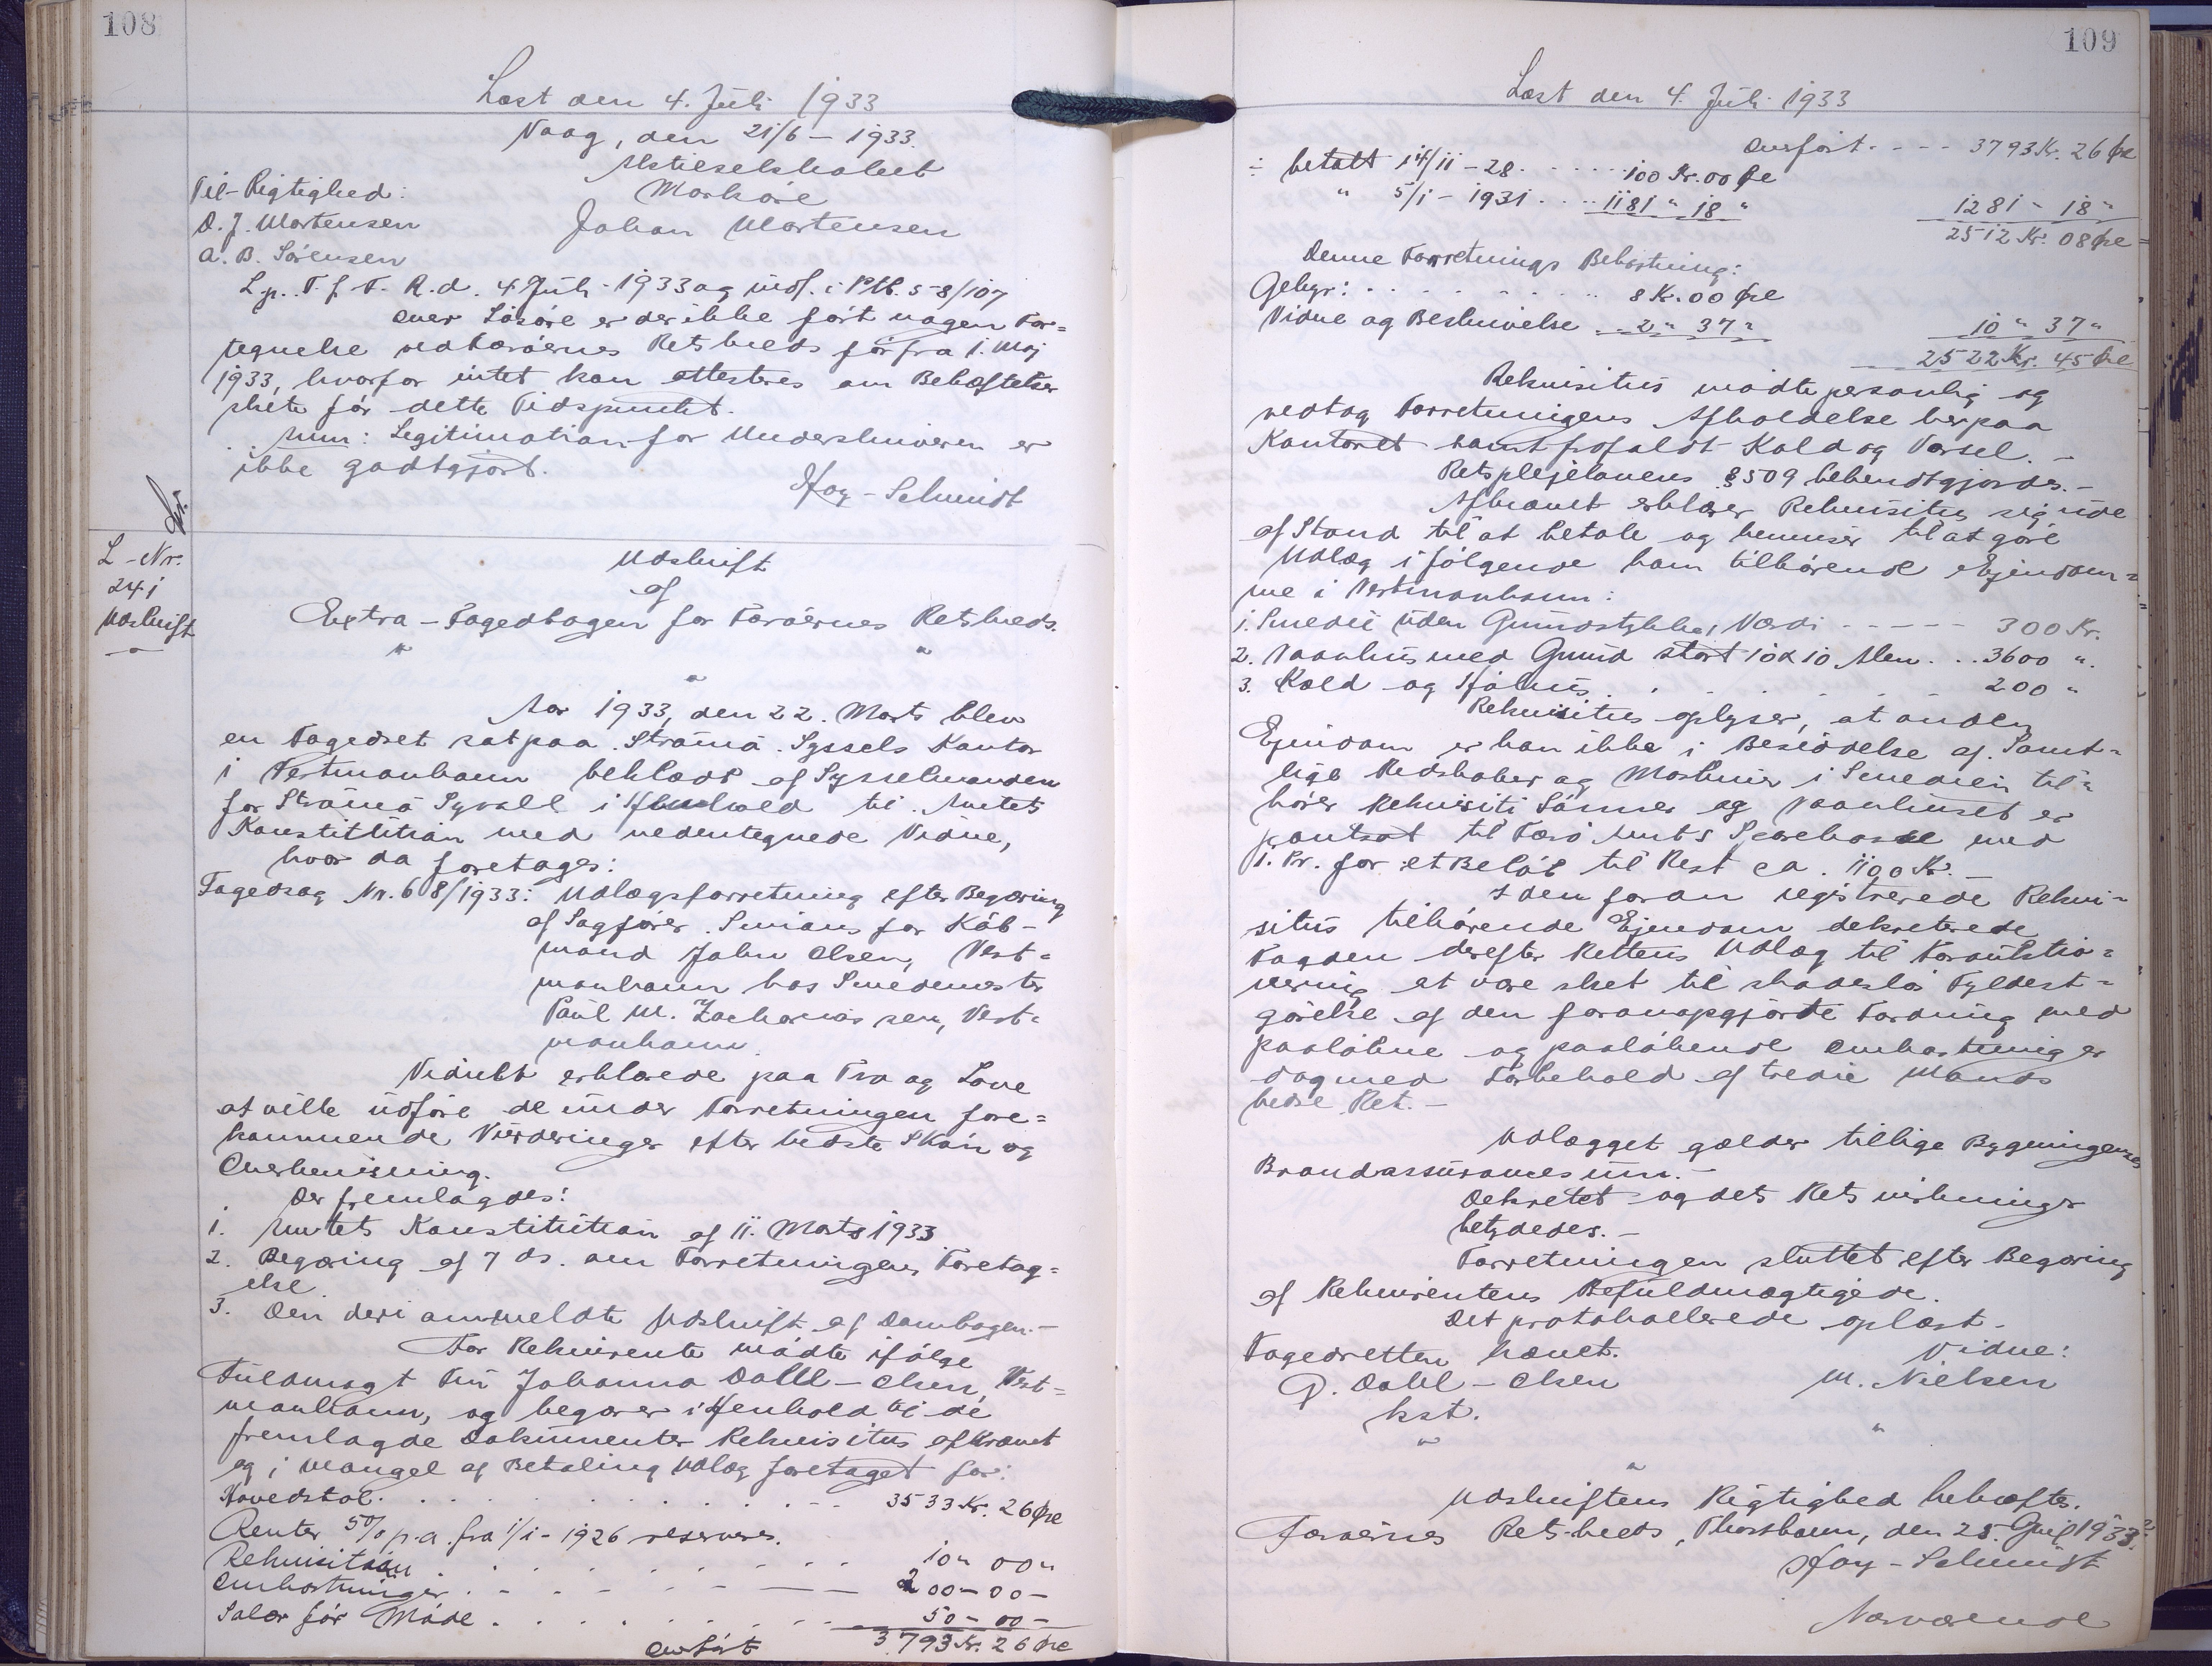 108
Læst den 4. Juli 1933
Vaag, den 21/6 - 1933.
Aktieselskabet
Til-Rigtighed: Morkøre
D. J. Mortensen Johan Mortensen
A. B. Sørensen
L p. T. f. F. R. d. 4 Juli - 1933 og indf. i Ptb. 5-8/107
over Løsøre er der ikke ført nogen For=
tegnelse ved Færøernes Retskreds før fra 1. Maj
1933, hvorfor intet kan attesteres om Behæftelser
skete før dette Tidspunkt.
Anm: Legitimation for Underskriveren er
ikke godtgjort.
Høy-Schmidt
L-Nr.
241
Udskrift
Udskrift
af
Extra-Fogedbogen for Færøernes Retskreds.
" "
"
Aar 1933, den 22. Marts blev
en Fogedret sat paa Strømø Syssels Kontor
i Vestmanhavn beklædt af Sysselmanden
for Strømø Syssel i Henhold til Amtets
Konstitution med nedentegnede Vidne,
hvor da foretoges:
Fogedsag Nr. 68/1933: Udlægsforretning efter Begæring
af Sagfører Simians for Køb-
mand John Olsen, Vest=
manhavn hos Smedemester
Paul M. Zachariassen, Vest-
manhavn.
Vidnet erklærede paa Tro og Love
at ville udføre de under Forretningen fore=
kommende Vurderinger efter bedste Skøn og
Overbevisning.
Der fremlagdes:
1. Amtets Konstitution af 11. Marts 1933
2. Begæring af 7 ds. om Forretningens Foretag=
else.
3. Den deri anmeldte Udskrift af Dombogen.-
For Rekvirenten mødte ifølge
Fuldmagt Fru Johanna Dahl-Olsen, Vest=
manhavn, og begærer i Henhold til de
fremlagde Dokumenter Rekvisitus afkrævet
og i Mangel af Betaling Udlæg foretaget for:
Hovedstol. . . . . 3533 Kr. 26 Øre
Renter 5% p.a. fra 1/1 - 1926 reserveres.
Rekvisition . . . . 10 " 00 "
Omkostninger . - - - - 200 - 00 -
Salær for Møde . . . . . 50 - 00 -
Overført 3793 Kr. 26 Øre
109
Læst den 4. Juli 1933
Overført. - - - - 3793 Kr. 26 Øre
÷ betalt 14/11 - 28. . . . . . 100 Kr. 00 Øre
" 5/1 - 1931 . . . . 1181 " 18 " 1281 - 18 "
2512 Kr. 08 Øre
Denne Forretnings Bekostning:
Gebyr: . . . . . . 8 Kr. 00 Øre
Vidne og Beskrivelse . . 2 " 37 " 10 " 37 "
2522 Kr. 45 Øre
Rekvisitus mødte personlig og
vedtog Forretningens Afholdelse her paa
Kontoret samt frafaldt Kald og Varsel. -
Retsplejelovens § 509 bekendtgjordes. -
Afkrævet erklærer Rekvisitus sig ude
af Stand til at betale og henviser til at gøre
Udlæg i følgende ham tilhørende Ejendom=
me i Vestmanhavn:
1. Smedie uden Grundstykke, Værdi - - - - - 300 Kr.
2. Vaanhus med Grund stort 10 x 10 Alen . . . 3600 ".
3. Kæld og Hjalhus . . . . . - - 200 "
Rekvisitus oplyser, at anden
Ejendom er han ikke i Besiddelse af. Samt=
lige Redskaber og Maskiner i Smedien til=
hører Rekvisiti Sønner og Vaanhuset er
pantsat til Færø Amts Sparekasse med
1. Pr. for et Beløb til Rest ca. 1100 Kr. -
I den foran registrerede Rekvi=
situs tilhørende Ejendom dekreterede
Fogden derefter Rettens Udlæg til Forauktio=
nering at være sket til skadesløs Fyldest=
gørelse af den foranopgjorte Fordring med
paaløbne og paaløbende Omkostninger
dog med Forbehold af tredie Mands
bedre Ret. -
Udlægget gælder tillige Bygningernes
Brandassurancesum. -
Dekretet og dets Retsvirkninger
betydedes. -
Forretningen sluttet efter Begæring
af Rekvirentens Befuldmægtigede.
Det protokollerede oplæst.
Fogedretten hævet. Vidne:
P. Dahl-Olsen M. Nielsen
kst.
" "
"
Udskriftens Rigtighed bekræftes.
Færøernes Retskreds, Thorshavn, den 28. Juni 1933.
Høy-Schmidt
Nærværende